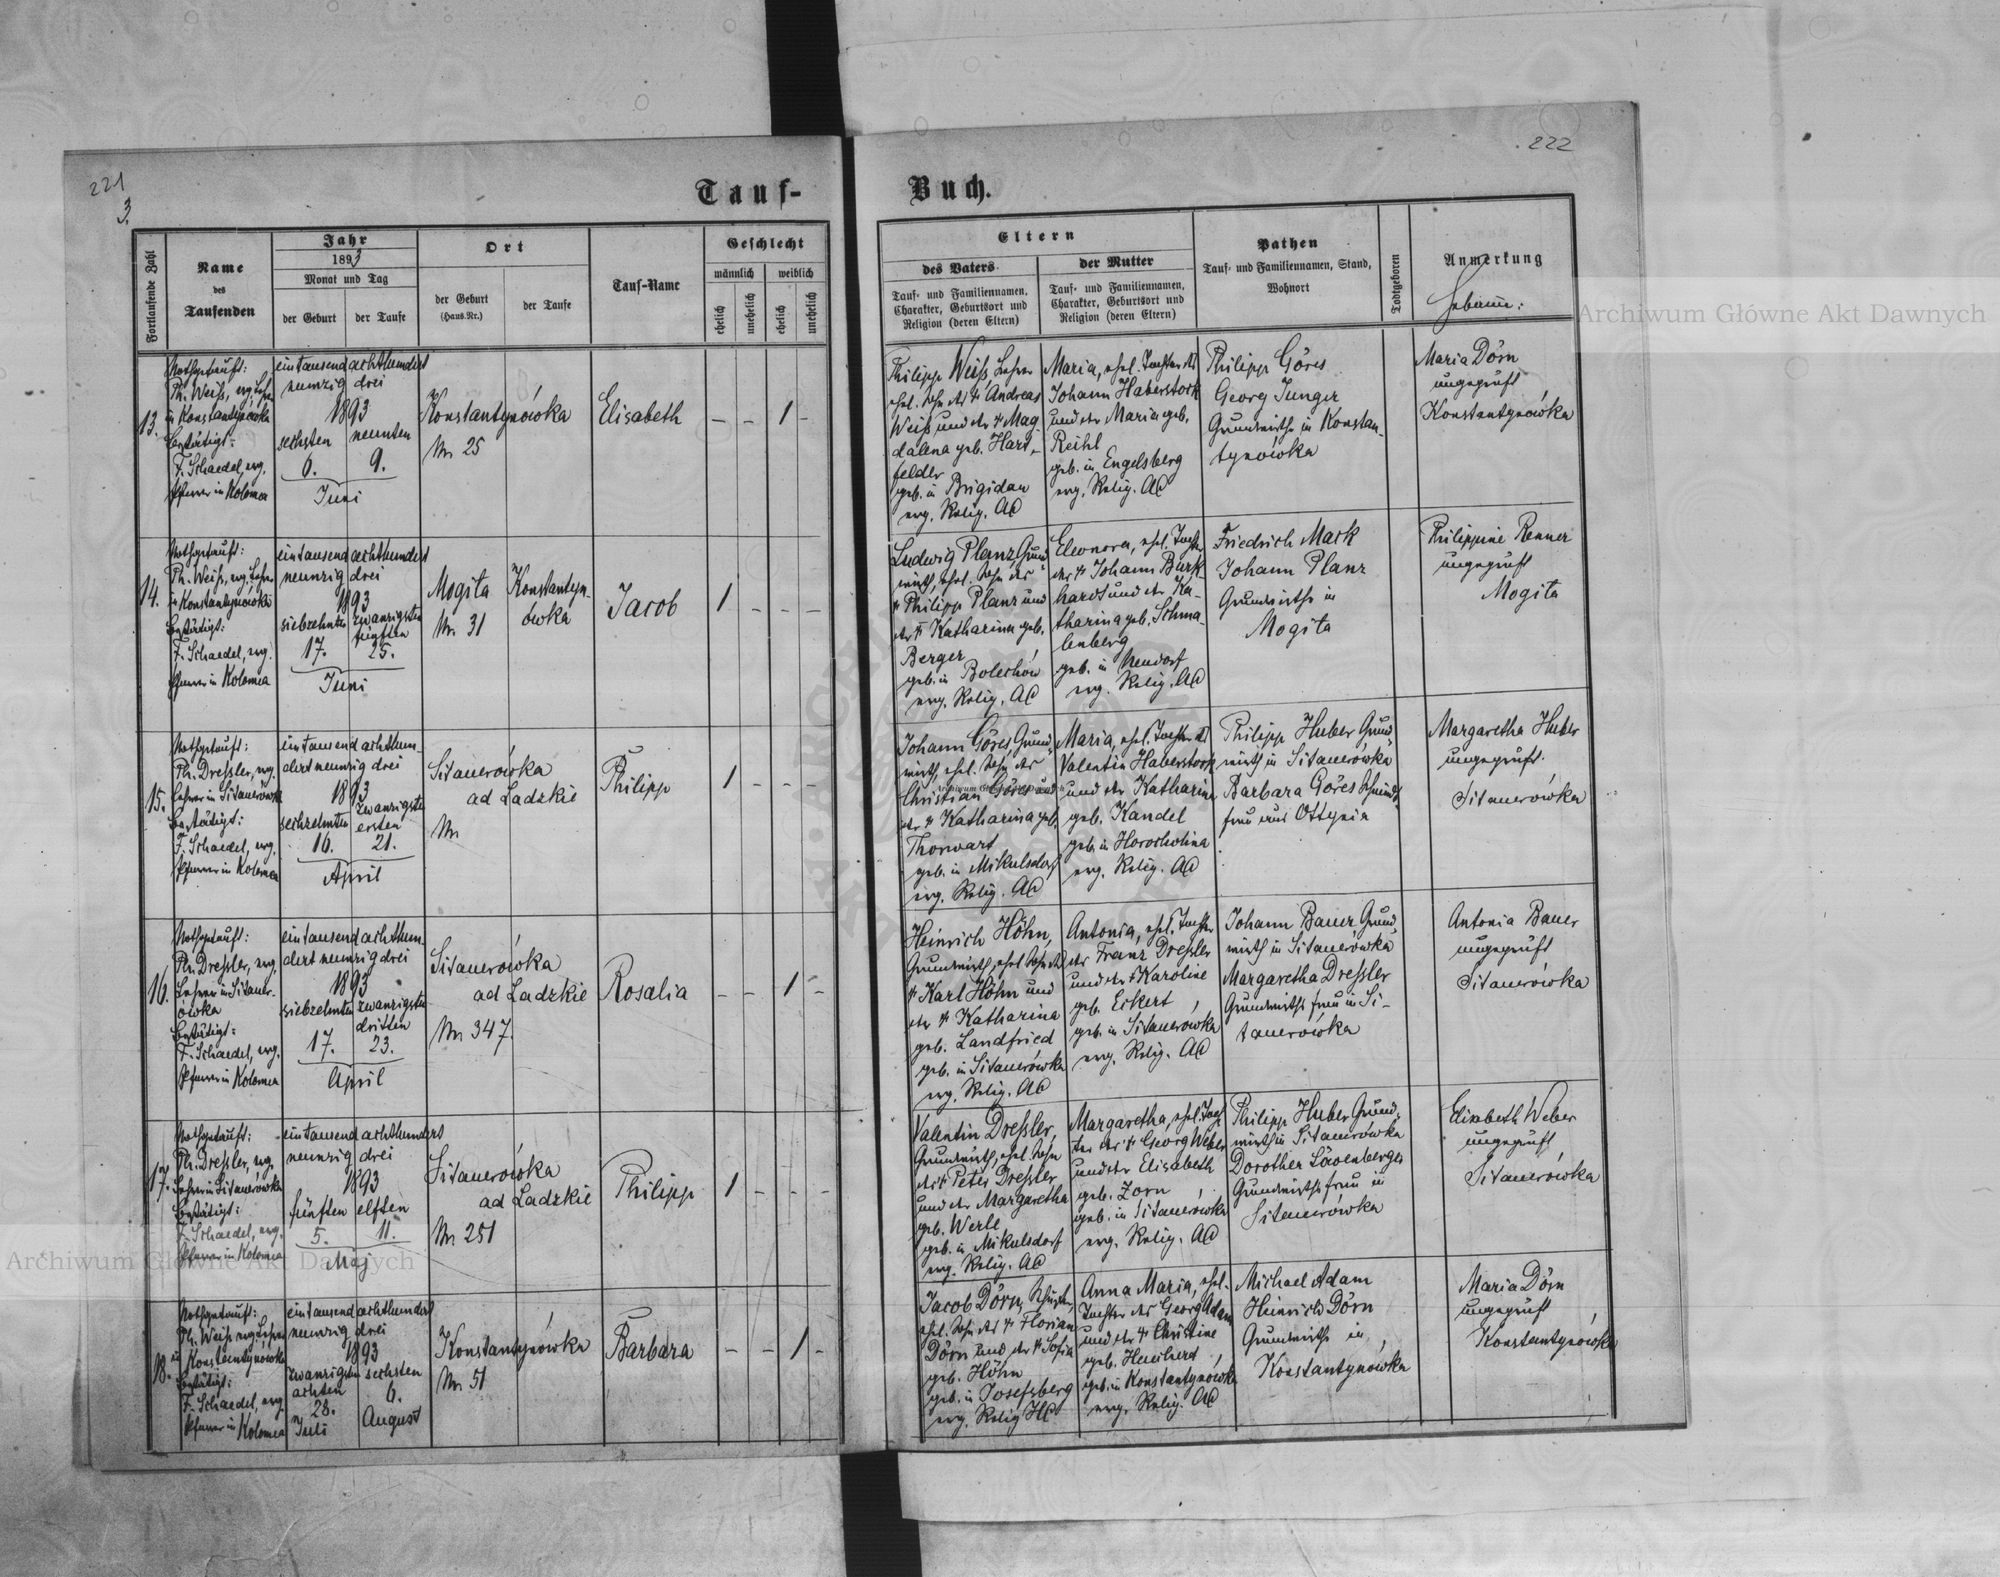 221
3.
Tauf-
Fortlaufende Zahl
Name
des
Taufenden
Jahr
1893
Monat und Tag
der Geburt
der Taufe
Ort
der Geburt
(Haus.Nr.)
der Taufe
Tauf-Name
Geschlecht
männlich
weiblich
ehelich
unehelich
ehelich
unehelich
13.
Nothgetauft:
Ph. Weiß, evg. Lehrer
in Konstantynówka
bestätigt:
F. Schaedel, evg.
Pfarrer in Kolomea
eintausend achthundert
neunzig drei
1893
sechsten
neunten
6.
9.
Juni
Konstantynówka
Nr. 25
Elisabeth
— — 1 —
14.
Nothgetauft:
Ph. Weiß, evg. Lehrer
in Konstantynówka
bestätigt:
F. Schaedel, evg.
Pfarrer in Kolomea
eintausend achthundert
neunzig drei
1893
siebzehnten
zwanzigsten
fünften
17.
25.
Juni
Mogita
Nr. 31
Konstantyn-
ówka
Jacob
1 — — —
15.
Nothgetauft:
Ph. Dreßler, evg.
Lehrer in Sitauerówka
bestätigt:
F. Schaedel, evg.
Pfarrer in Kolomea
eintausend achthun-
dert neunzig drei
1893
sechzehnten
zwanzigsten
ersten
16.
21.
April
Sitauerówka
ad Ladzkie
Nr.
Philipp
1 — — —
16.
Nothgetauft:
Ph. Dreßler, evg.
Lehrer in Sitauer-
ówka
bestätigt:
F. Schaedel, evg.
Pfarrer in Kolomea
eintausend achthun-
dert neunzig drei
1893
siebzehnten
zwanzigsten
dritten
17.
23.
April
Sitauerówka
ad Ladzkie
Nr. 347.
Rosalia
— — 1 —
17.
Nothgetauft:
Ph. Dreßler, evg.
Lehrer in Sitauerówka
bestätigt:
F. Schaedel, evg.
Pfarrer in Kolomea
eintausend achthundert
neunzig drei
1893
fünften
elften
5.
11.
Maj
Sitauerówka
ad Ladzkie
Nr. 251
Philipp
1 — — —
18.
Nothgetauft:
Ph. Weiß, evg. Lehrer
in Konstantynówka
bestätigt:
F. Schaedel, evg.
Pfarrer in Kolomea
eintausend achthundert
neunzig drei
1893
zwanzigsten
achten
sechsten
28.
6.
Juli
August
Konstantynówka
Nr. 51
Barbara
— — 1 —
222
Buch.
Eltern
des Vaters
Tauf- und Familiennamen,
Charakter, Geburtsort und
Religion (deren Eltern)
der Mutter
Tauf- und Familiennamen,
Charakter, Geburtsort und
Religion (deren Eltern)
Pathen
Tauf- und Familiennamen, Stand,
Wohnort
Todtgeboren
Anmerkung
Hebamme:
Philipp Weiß, Lehrer
ehel. Sohn des † Andreas
Weiß und der † Mag-
dalena geb. Hart-
felder
geb. in Brigidau
evg. Relig. AC
Maria, ehel. Tochter des
Johann Haberstock
und der Maria geb.
Reihl
geb. in Engelsberg
evg. Relig. AC
Philipp Göres
Georg Junger
Grundwirthe in Konstan-
tynówka
Maria Dörn
ungeprüft
Konstantynówka
Ludwig Planz Grund-
wirth, ehel. Sohn des
† Philipp Planz und
der † Katharina geb.
Berger
geb. in Bolechów
evg. Relig. AC
Eleonora, ehel. Tochter
des † Johann Burk-
hardt und der Ka-
tharina geb. Schma-
lenberg
geb. in Neudorf
evg. Relig. AC
Friedrich Mark
Johann Planz
Grundwirthe in
Mogita
Philippine Renner
ungeprüft
Mogita
Johann Göres Grund-
wirth, ehel. Sohn des
Christian Göres und
der † Katharina geb.
Thorwart
geb. in Mikulsdorf
evg. Relig. AC
Maria, ehel. Tochter des
Valentin Haberstock
und der Katharina
geb. Kandel
geb. in Horocholina
evg. Relig. AC
Philipp Huber Grund-
wirth in Sitauerówka
Barbara Göres Schmieds-
frau aus Ottynia
Margaretha Huber
ungeprüft.
Sitauerówka
Heinrich Höhn,
Grundwirth, ehel. Sohn des
† Karl Höhn und
der † Katharina
geb. Landfried
geb. in Sitauerówka
evg. Relig. AC
Antonia, ehel. Tochter
des Franz Dreßler
und der † Karoline
geb. Eckert
geb. in Sitauerówka
evg. Relig. AC
Johann Bauer Grund-
wirth in Sitauerówka
Margaretha Dreßler
Grundwirths frau in Si-
tauerówka
Antonia Bauer
ungeprüft
Sitauerówka
Valentin Dreßler
Grundwirth, ehel. Sohn
des † Peter Dreßler
und der Margaretha
geb. Werle
geb. in Mikulsdorf
evg. Relig. AC
Margaretha, ehel. Toch-
ter des † Georg Weber
und der Elisabeth
geb. Zorn
geb. in Sitauerówka
evg. Relig. AC
Philipp Huber Grund-
wirth in Sitauerówka
Dorothea Lövenberger
Grundwirths frau in
Sitauerówka
Elisabeth Weber
ungeprüft
Sitauerówka
Jacob Dörn, Schuster,
ehel. Sohn des † Florian
Dörn und der † Sofia
geb. Höhn
geb. in Josefsberg
evg. Relig HC
Anna Maria, ehel.
Tochter des Georg Adam
und der † Christine
geb.
geb. in Konstantynówka
evg. Relig. AC
Michael Adam
Heinrich Dörn
Grundwirthe in
Konstantynówka
Maria Dörn
ungeprüft
Konstantynówka
Archiwum Główne Akt Dawnych
Archiwum Główne Akt Dawnych